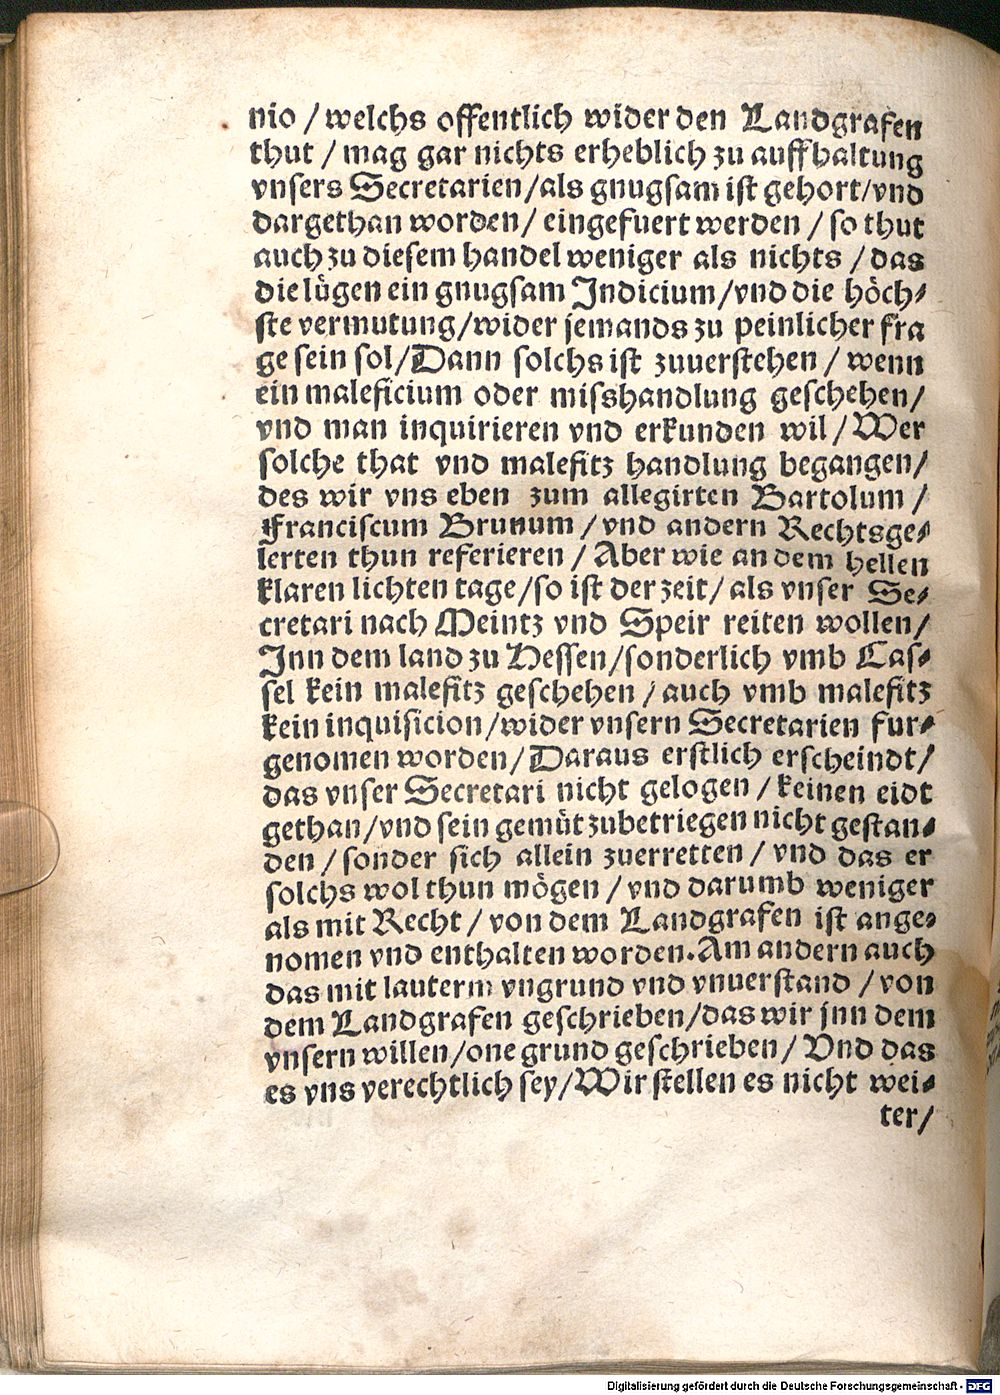 nio / welchs offentlich wider den Landgrafen
thut / mag gar nichts erheblich zu auffhaltung
vnsers Secretarien / als gnugsam ist gehort / vnd
dargethan worden / eingefuert werden / so thut
auch zu diesem handel weniger als nichts / das
die lügen ein gnugsam Indicium / vnd die höch⸗
ste vermutung / wider jemands zu peinlicher fra
ge sein sol / Dann solchs ist zuuerstehen / wenn
ein maleficium oder misshandlung geschehen /
vnd man inquirieren vnd erkunden wil / Wer
solche that vnd malefitz handlung begangen /
des wir vns eben zum allegirten Bartolum /
Franciscum Brunum / vnd andern Rechtsge⸗
lerten thun referieren / Aber wie an dem hellen
klaren lichten tage / so ist der zeit / als vnser Se⸗
cretari nach Meintz vnd Speir reiten wollen /
Inn dem land zu Hessen / sonderlich vmb Cas⸗
sel kein malefitz geschehen / auch vmb malefitz
kein inquisicion / wider vnsern Secretarien fur⸗
genomen worden / Daraus erstlich erscheindt /
das vnser Secretari nicht gelogen / keinen eidt
gethan / vnd sein gemüt zubetriegen nicht gestan⸗
den / sonder sich allein zuerretten / vnd das er
solchs wol thun mögen / vnd darumb weniger
als mit Recht / von dem Landgrafen ist ange⸗
nomen vnd enthalten worden. Am andern auch
das mit lauterm vngrund vnd vnuerstand / von
dem Landgrafen geschrieben / das wir jnn dem
vnsern willen / one grund geschrieben / Vnd das
es vns verechtlich sey / Wir stellen es nicht wei⸗
ter /
Digitalisierung gefördert durch die Deutsche Forschungsgemeinschaft - DFG